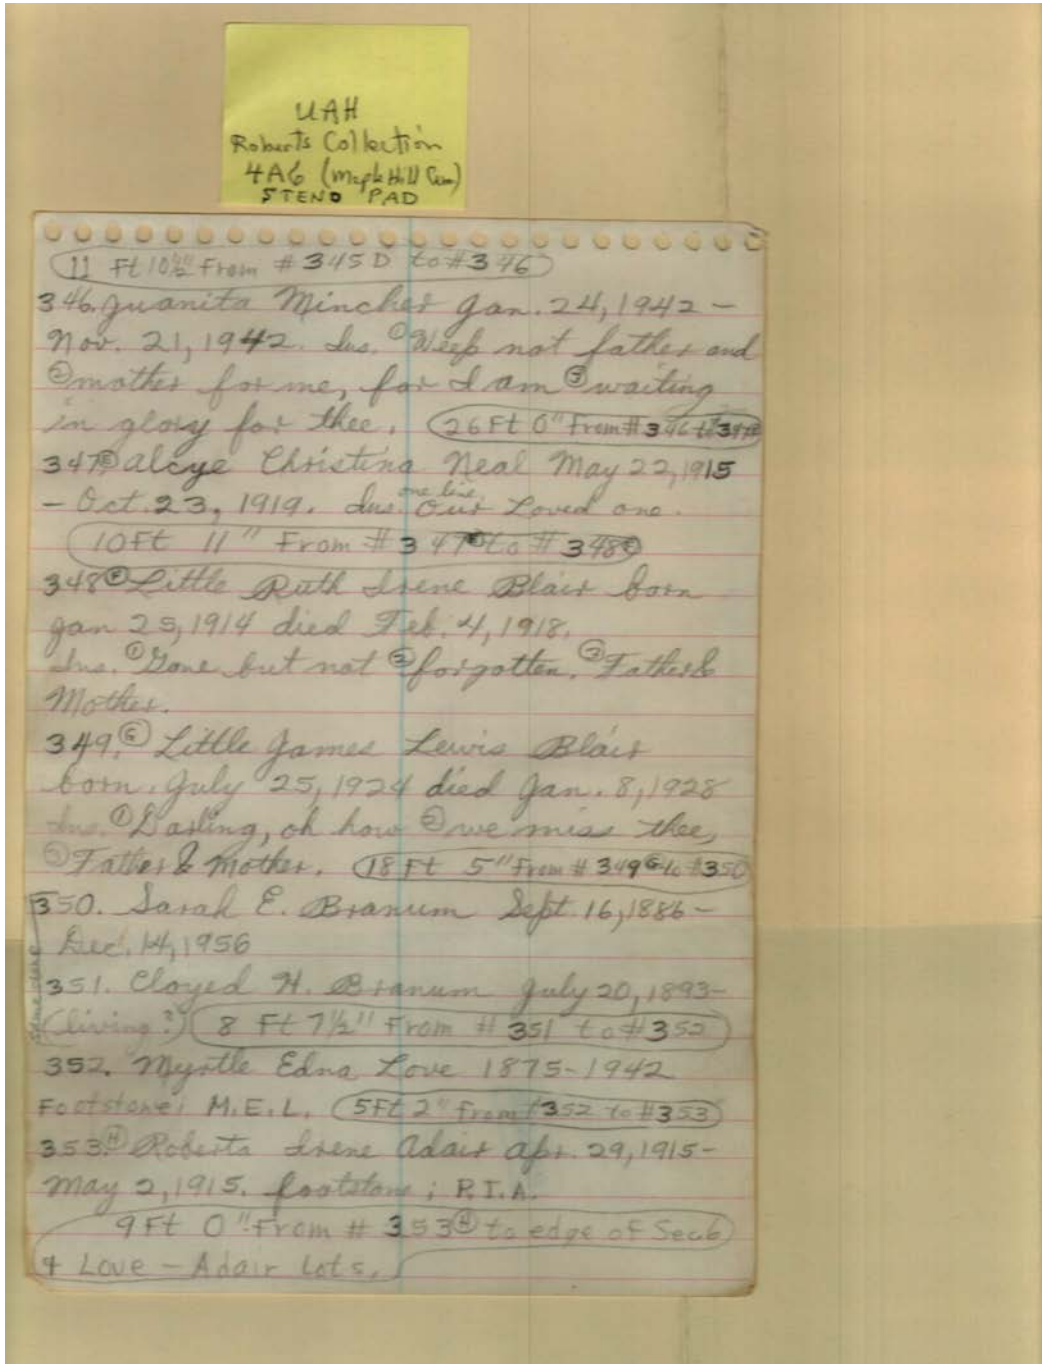 UAH
Roberts Collection
4A6 (Maple Hill Cem)
STENO PAD
11 Ft 10½" From # 345D to # 346
346. Juanita Mincher Jan. 24, 1942 –
Nov. 21, 1942. Ins. ① Weep not father and
② mother for me, for I am ③ waiting
in glory for thee. 26 Ft 0" From # 346 to 347Ⓔ
347Ⓔ Alcye Christina Neal May 22, 1915
– Oct. 23, 1919. Ins. one line Our Loved one.
10 Ft 11" From # 347Ⓔ to # 348Ⓕ
348Ⓕ Little Ruth Irene Blair born
Jan 25, 1914 died Feb. 4, 1918.
Ins. ① Gone but not ② forgotten. ③ Father &
Mother.
349.Ⓖ Little James Lewis Blair
born. July 25, 1924 died Jan. 8, 1928
Ins. ① Darling, oh how ② we miss thee,
③ Father & Mother. 18 Ft 5" From # 349Ⓖ to #350
350. Sarah E. Branum Sept. 16, 1886 –
Dec. 14, 1956
351. Cloyed H. Branum July 20, 1893–
(living?) 8 Ft 7½" From # 351 to # 352
352. Myrtle Edna Love 1875-1942
Footstone; M.E.L. 5 Ft 2" From #352 to #353
353.Ⓗ Roberta Irene Adair Apr. 29, 1915–
May 2, 1915. footstone; R.I.A.
9 Ft 0" From # 353Ⓗ to edge of Sec 6
& Love – Adair Lots.